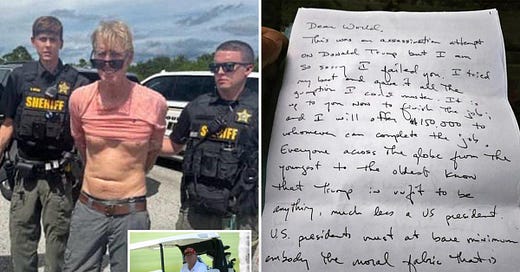 SHERIFF
SHERIFF
Dear World,
This was an assassination attempt
on Donald Trump but I am
so sorry I failed you. I tried
my best and gave it all the
gumption I could muster. It is
up to you now to finish the job;
and I will offer $150,000 to
whomever can complete the job.
Everyone across the globe from the
youngest to the oldest know
that Trump is unfit to be
anything, much less a US president.
U.S. presidents must at bare minimum
embody the moral fabric that is